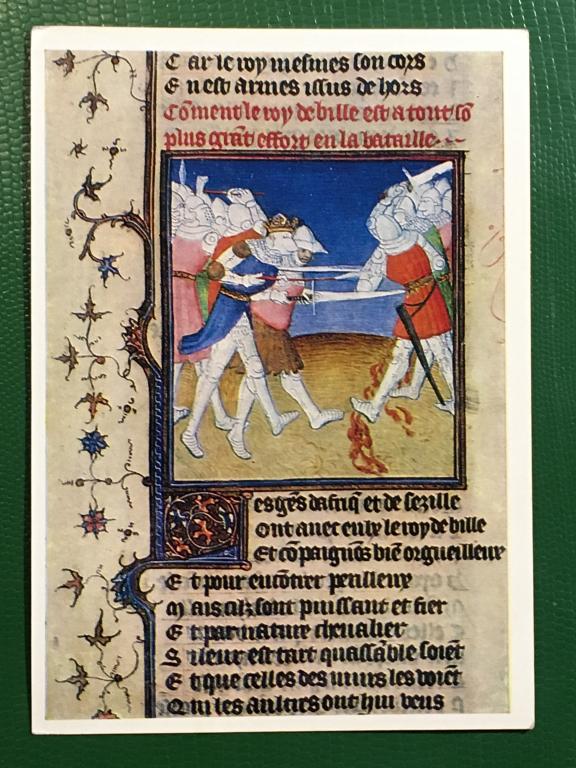 Car le roy mesmes son cors
En est armes issus de hors
Cōment le roy de bille est a tout sō
plus grāt effort en la bataille
Des gēs dafriq̄ et de sezille
Ont avec eulx le roy de bille
Et cōpaignōs biē orgueilleux
Et pour encōtrer perilleux
Mais cilz sont puissant et fier
Et par nature chevalier
Si leur est tart quassāble soiēt
Et que celles des murs les voiēt
Qui les aultres ont hui veus